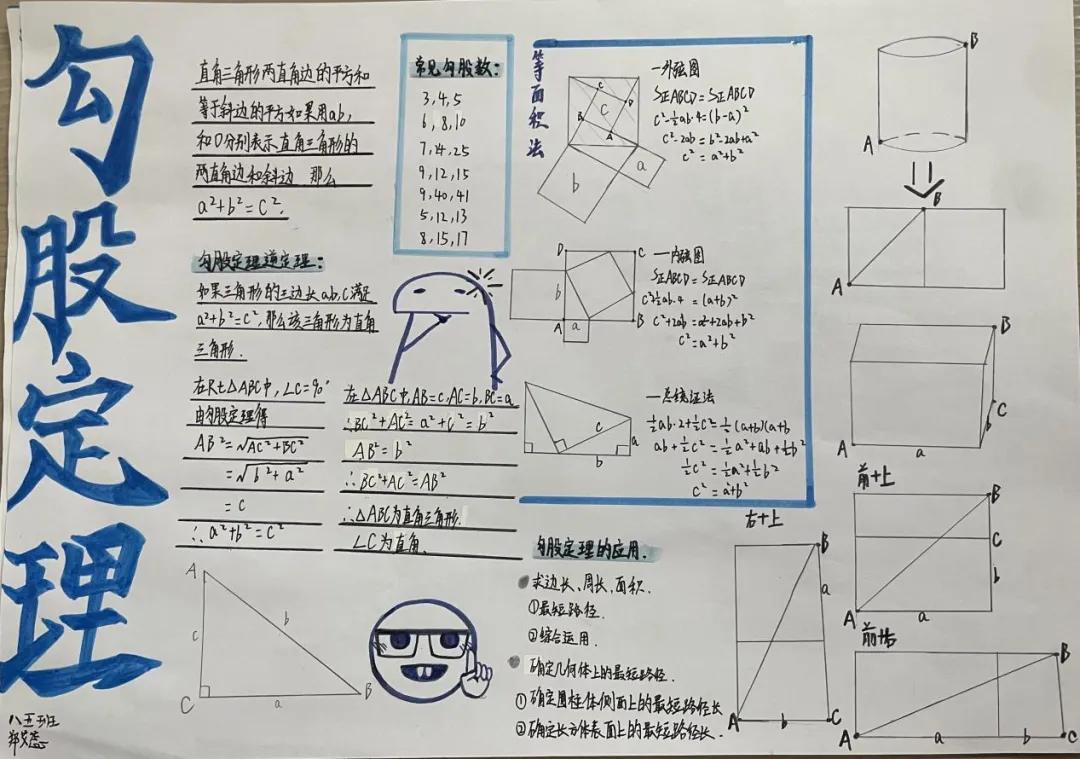 勾股定理
直角三角形两直角边的平方和
等于斜边的平方如果用ab,
和0分别表示直角三角形的
两直角边和斜边 那么
a²+b²=c².
勾股定理逆定理:
如果三角形的三边长ab,c满足
a²+b²=c²,那么该三角形为直角
三角形.
在Rt△ABC中,∠C=90°
由勾股定理得
AB²=√AC²+BC²
=√b²+a²
=c
∴a²+b²=c²
在△ABC中,AB=c,AC=b,BC=a
∴BC²+AC²=a²+c²=b²
AB²=b²
∴BC²+AC²=AB²
∴△ABC为直角三角形.
∠C为直角.
A
c
b
C
a
B
八五班
常见勾股数:
3,4,5
6,8,10
7,24,25
9,12,15
9,40,41
5,12,13
8,15,17
等面积法
C
D
B
C
A
b
a
一外弦图
S正ABCD=S正ABCD
c²-½ab·4=(b-a)²
c²-2ab=b²-2ab+a²
c²=a²+b²
D
C
b
A
a
B
一内弦图
S正ABCD=S正ABCD
c²½ab·4=(a+b)²
c²+2ab=a²+2ab+b²
c²=a²+b²
c
a
b
一总统证法
½ab·2+½c²=½(a+b)(a+b
ab+½c²=½a²+ab+½b²
½c²=½a²+½b²
c²=a²+b²
勾股定理的应用.
求边长、周长、面积.
①最短路径.
②综合运用.
确定几何体上的最短路径.
①确定圆柱体侧面上的最短路径长
②确定长方体表面上的最短路径长.
右+上
B
a
A
b
C
B
A
B
A
B
C
b
A
a
前+上
B
C
b
A
a
前+右
B
A
a
b
C